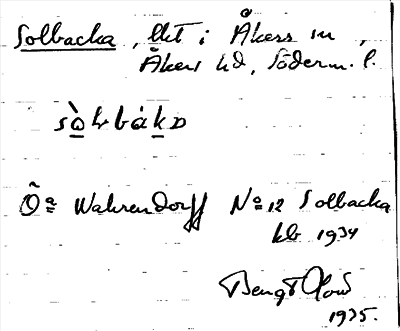 Solbacka, lht i Åkers sn,
Åkers hd, Söderm. l.
Wahrendorff No 12 Solbacka
kb 1934
Bengt
1935.